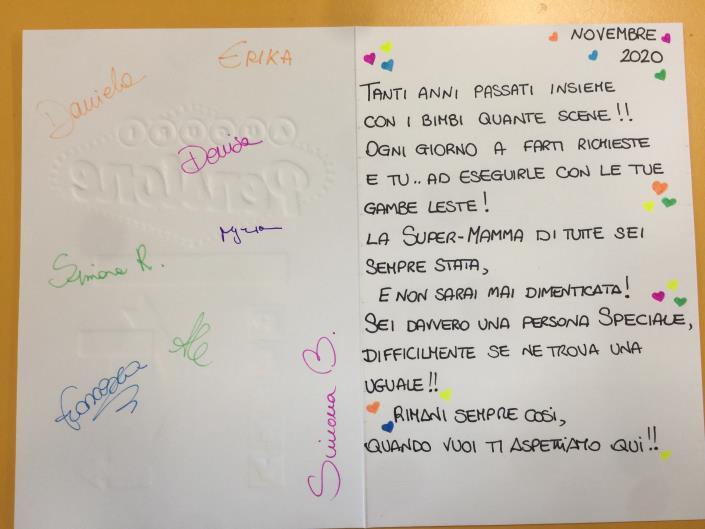 Daniela
ERIKA
Denisa
Simona R.
Ale
Francesca
Simona B.
NOVEMBRE
2020
TANTI ANNI PASSATI INSIEME
CON I BIMBI QUANTE SCENE!!
OGNI GIORNO A FARTI RICHIESTE
E TU.. AD ESEGUIRLE CON LE TUE
GAMBE LESTE!
LA SUPER-MAMMA DI TUTTE SEI
SEMPRE STATA,
E NON SARAI MAI DIMENTICATA!
SEI DAVVERO UNA PERSONA SPECIALE,
DIFFICILMENTE SE NE TROVA UNA
UGUALE!!
RIMANI SEMPRE COSÌ,
QUANDO VUOI TI ASPETTIAMO QUI!!